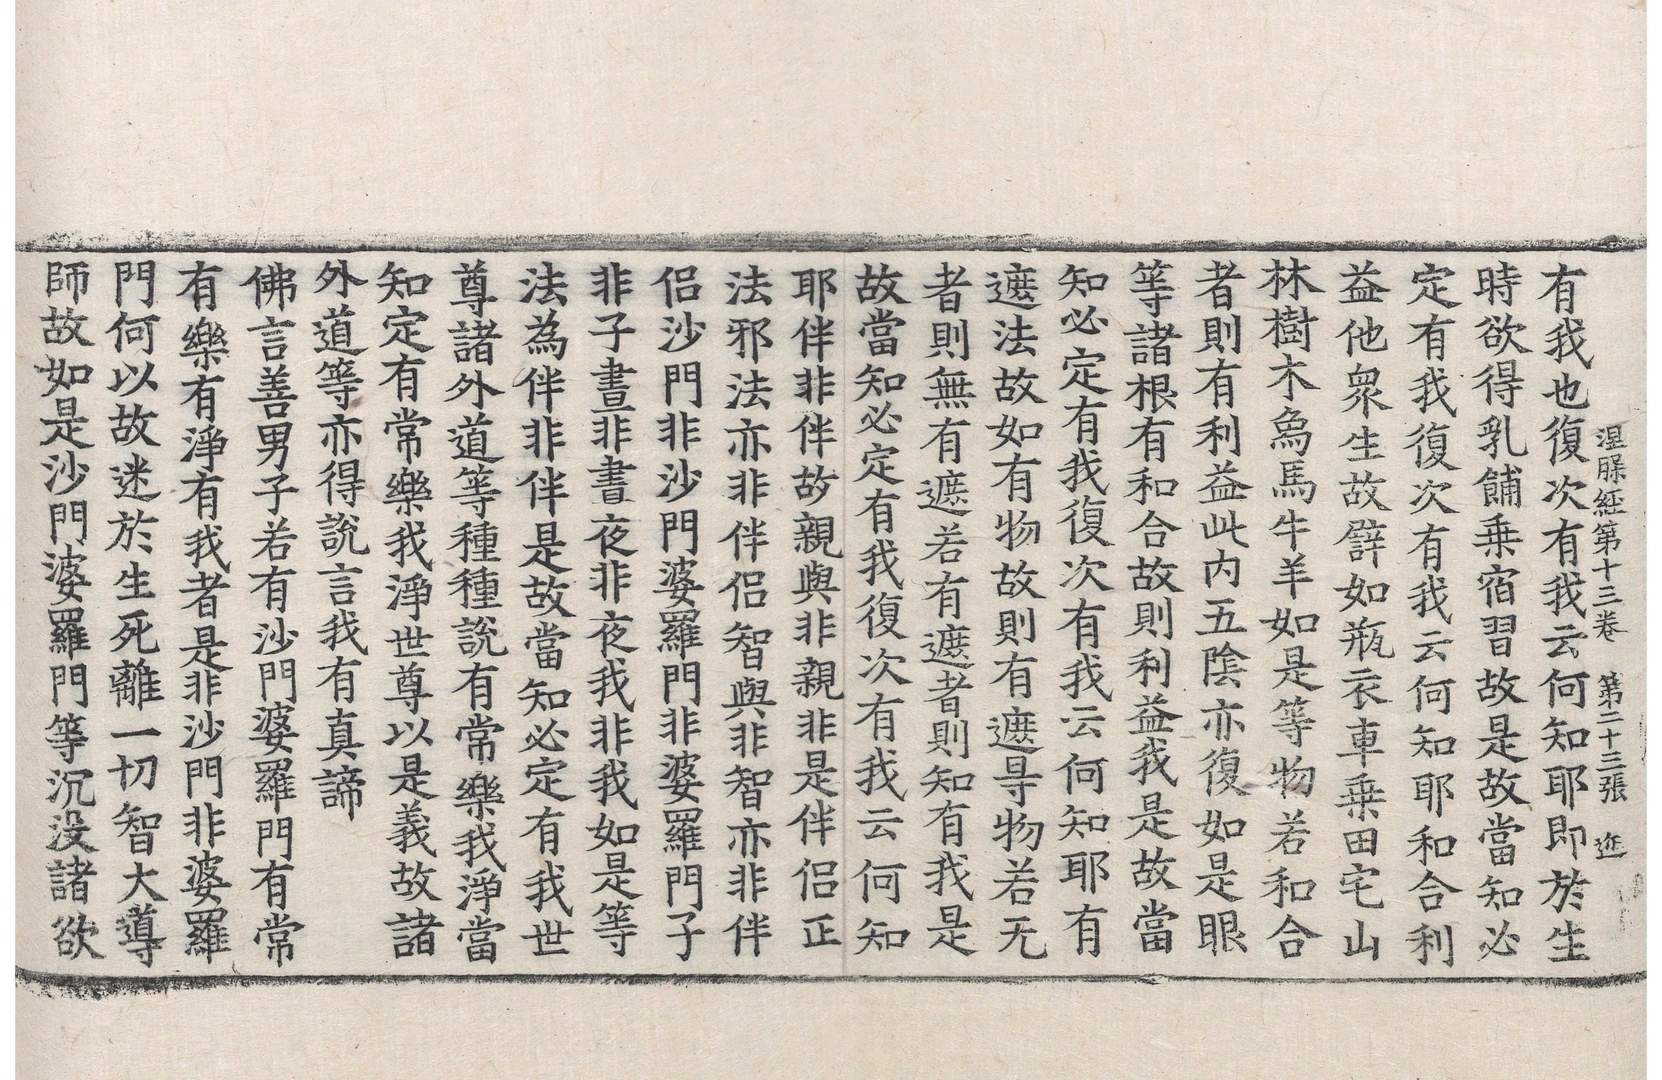 涅槃經第十三卷　第二十三張　迩
有我也復次有我云何知耶即於生
時欲得乳餔乗宿習故是故當知必
定有我復次有我云何知耶和合利
益他衆生故譬如瓶衣車乗田宅山
林樹木象馬牛羊如是等物若和合
者則有利益此内五陰亦復如是眼
等諸根有和合故則利益我是故當
知必定有我復次有我云何知耶有
遮法故如有物故則有遮导物若无
者則無有遮若有遮者則知有我是
故當知必定有我復次有我云何知
耶伴非伴故親與非親非是伴侶正
法邪法亦非伴侶智與非智亦非伴
侶沙門非沙門婆羅門非婆羅門子
非子晝非晝夜非夜我非我如是等
法為伴非伴是故當知必定有我世
尊諸外道等種種說有常樂我淨當
知定有常樂我淨世尊以是義故諸
外道等亦得說言我有真諦
佛言善男子若有沙門婆羅門有常
有樂有淨有我者是非沙門非婆羅
門何以故迷於生死離一切智大導
師故如是沙門婆羅門等沉没諸欲